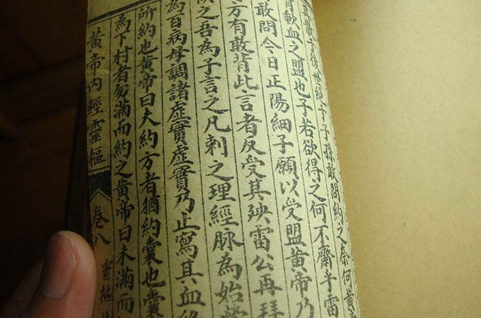 後世絕於子孫敢問約之奈何黃
歃血之盟也子若欲得之何不齋乎雷
敢問今日正陽細子願以受盟黃帝乃
方有敢背此言者反受其殃雷公再拜
之吾為子言之凡刺之理經脈為始
為百病母調諸虛實虛實乃止寫其血
所約也黃帝曰夫約方者猶約囊也囊
為下材者勿滿而約之黃帝曰未滿而
黃帝內經靈樞 卷八 靈樞